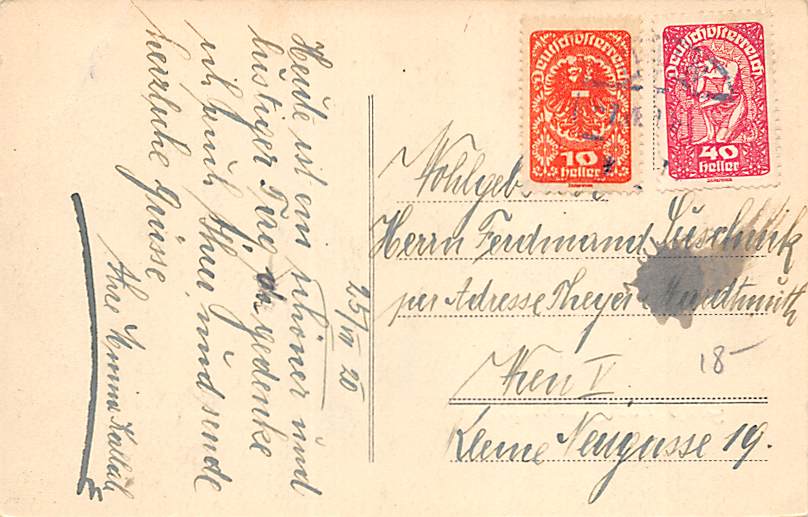 Heute ist ein schöner und
lustiger Tag da gedenke
ich auch Ihrer und sende
herzliche Grüsse
Ihre Emma
25/VII 20
Deutschösterreich
10
heller
Deutschösterreich
40
heller
Wohlgeb
Herrn Ferdinand Suschnik
per Adresse Theyer Hardtmuth
Wien V.
18-
Kleine Neugasse 19.